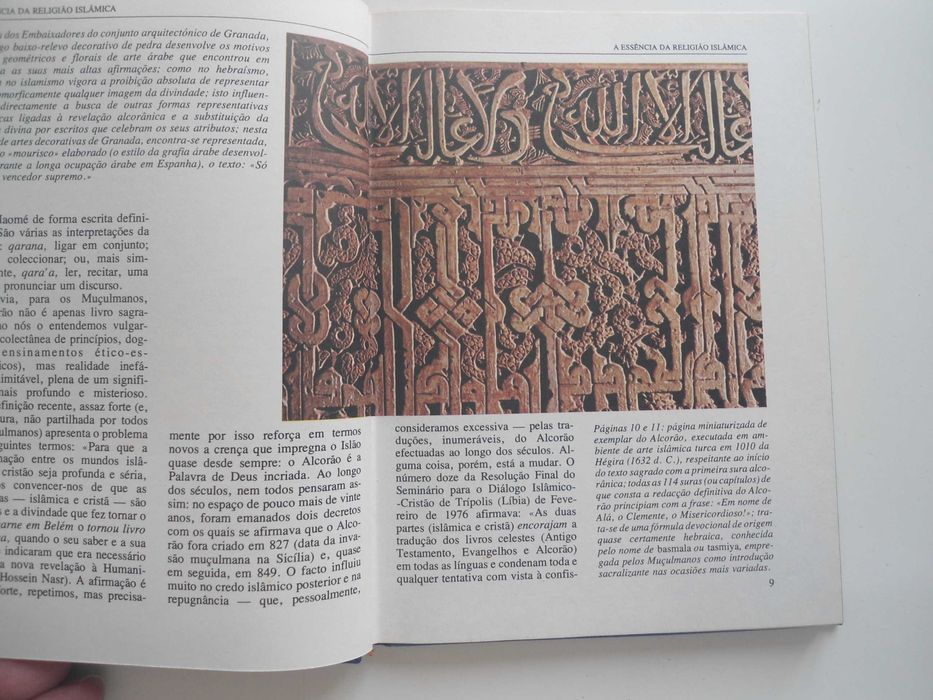 CIA DA RELIGIÃO ISLÂMICA
dos Embaixadores do conjunto arquitectónico de Granada,
go baixo-relevo decorativo de pedra desenvolve os motivos
geométricos e florais de arte árabe que encontrou em
a as suas mais altas afirmações; como no hebraísmo,
no islamismo vigora a proibição absoluta de representar
omorficamente qualquer imagem da divindade; isto influen-
directamente a busca de outras formas representativas
cas ligadas à revelação alcorânica e a substituição da
divina por escritos que celebram os seus atributos; nesta
de artes decorativas de Granada, encontra-se representada,
o «mourisco» elaborado (o estilo da grafia árabe desenvol-
rante a longa ocupação árabe em Espanha), o texto: «Só
vencedor supremo.»
aomé de forma escrita defini-
São várias as interpretações da
: qarana, ligar em conjunto;
coleccionar; ou, mais sim-
nte, qara'a, ler, recitar, uma
pronunciar um discurso.
via, para os Muçulmanos,
rão não é apenas livro sagra-
no nós o entendemos vulgar-
colectânea de princípios, dog-
ensinamentos ético-es-
icos), mas realidade inefá-
imitável, plena de um signifi-
mais profundo e misterioso.
efinição recente, assaz forte (e,
ura, não partilhada por todos
ulmanos) apresenta o problema
guintes termos: «Para que a
mação entre os mundos islâ-
cristão seja profunda e séria,
os convencer-nos de que as
as — islâmica e cristã — são
s e a divindade que fez tornar o
carne em Belém o tornou livro
a, quando o seu saber e a sua
indicaram que era necessário
a nova revelação à Humani-
Hossein Nasr). A afirmação é
forte, repetimos, mas precisa-
mente por isso reforça em termos
novos a crença que impregna o Islão
quase desde sempre: o Alcorão é a
Palavra de Deus incriada. Ao longo
dos séculos, nem todos pensaram as-
sim: no espaço de pouco mais de vinte
anos, foram emanados dois decretos
com os quais se afirmava que o Alco-
rão fora criado em 827 (data da inva-
são muçulmana na Sicília) e, quase
em seguida, em 849. O facto influiu
muito no credo islâmico posterior e na
repugnância — que, pessoalmente,
A ESSÊNCIA DA RELIGIÃO ISLÂMICA
consideramos excessiva — pelas tra-
duções, inumeráveis, do Alcorão
efectuadas ao longo dos séculos. Al-
guma coisa, porém, está a mudar. O
número doze da Resolução Final do
Seminário para o Diálogo Islâmico-
-Cristão de Trípolis (Líbia) de Feve-
reiro de 1976 afirmava: «As duas
partes (islâmica e cristã) encorajam a
tradução dos livros celestes (Antigo
Testamento, Evangelhos e Alcorão)
em todas as línguas e condenam toda e
qualquer tentativa com vista à confis-
Páginas 10 e 11: página miniaturizada de
exemplar do Alcorão, executada em am-
biente de arte islâmica turca em 1010 da
Hégira (1632 d. C.), respeitante ao início
do texto sagrado com a primeira sura alco-
rânica; todas as 114 suras (ou capítulos) de
que consta a redacção definitiva do Alco-
rão principiam com a frase: «Em nome de
Alá, o Clemente, o Misericordioso!»; tra-
ta-se de uma fórmula devocional de origem
quase certamente hebraica, conhecida
pelo nome de basmala ou tasmiya, empre-
gada pelos Muçulmanos como introdução
sacralizante nas ocasiões mais variadas.
9